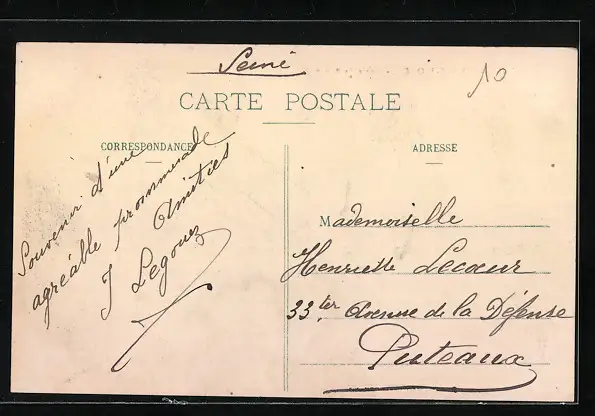 Seine
10
CARTE POSTALE
CORRESPONDANCE
ADRESSE
Souvenir d'une
agréable promenade
Amitiés
J Legouez
Mademoiselle
Henriette Lecœur
33ter Avenue de la Défense
Puteaux